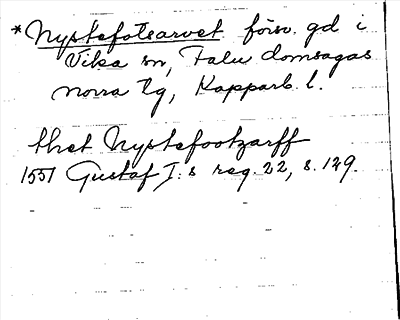 *Nystefotsarvet försv. gd i
Vika sn, Falu domsagas
norra tg, Kopparb. l.
thet Nystefootzarff
1551 Gustaf I:s reg. 22, s. 129.